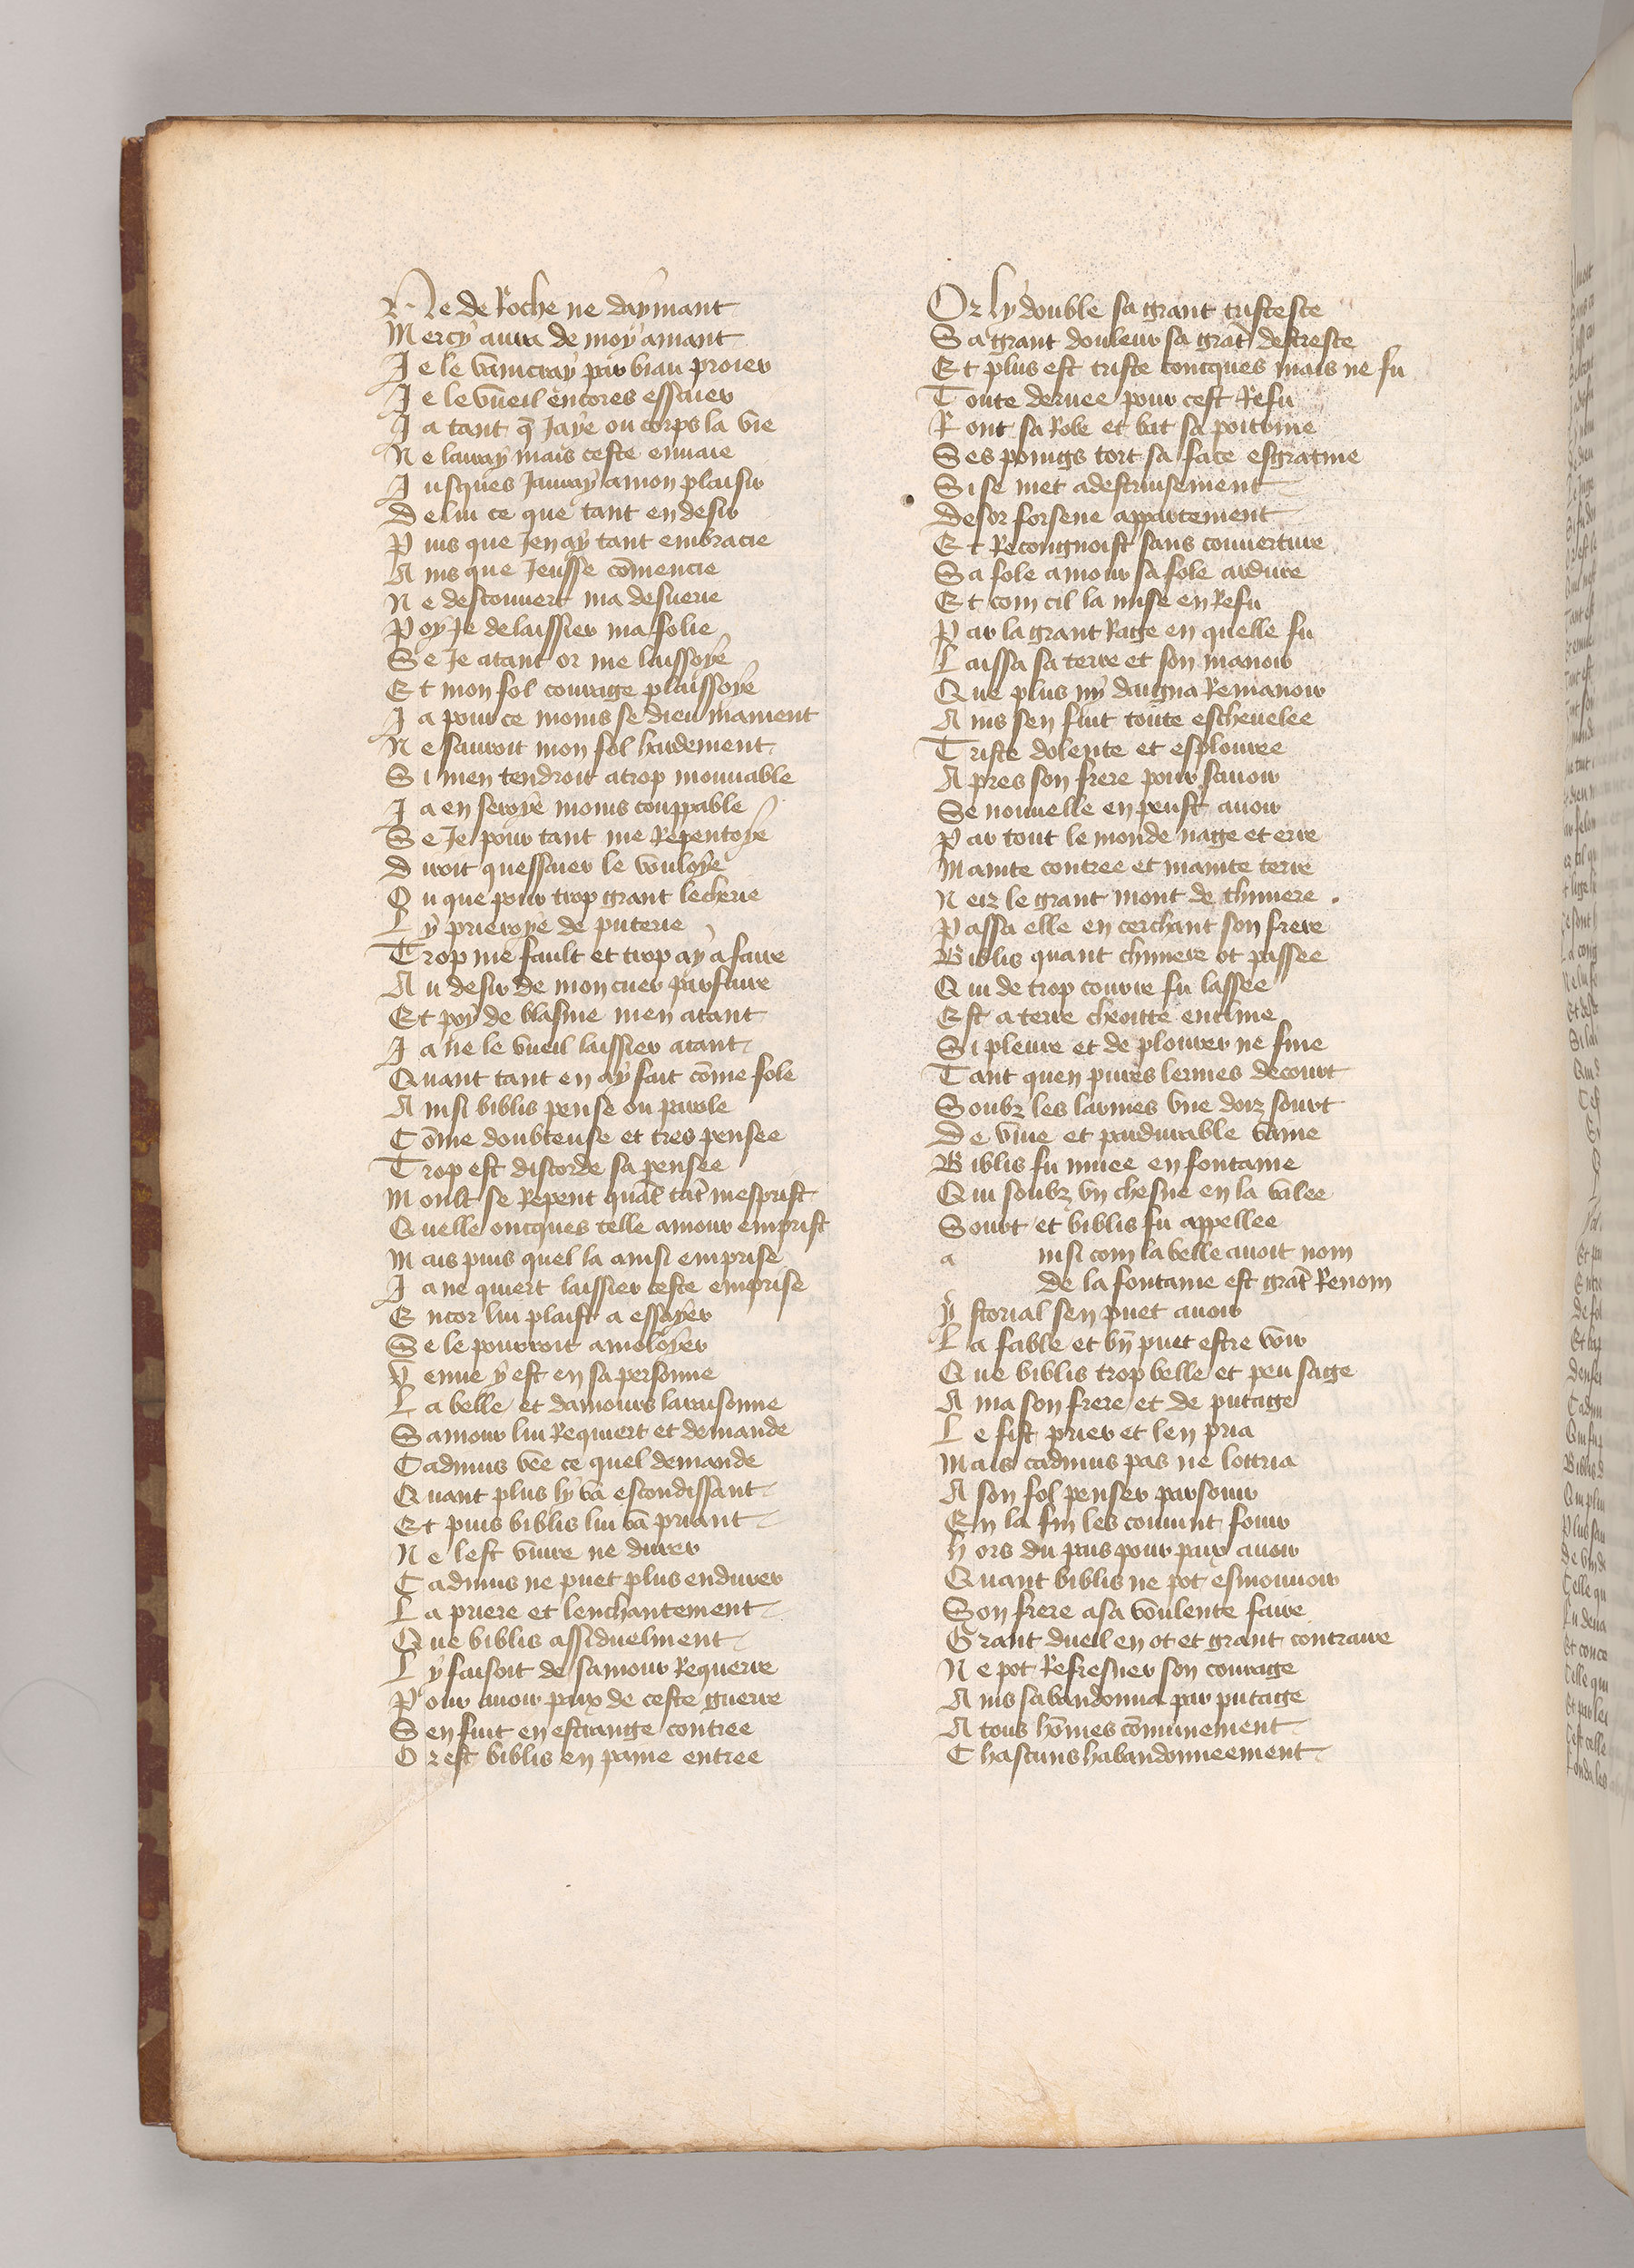 Ne de Roche ne daymant
Mercy aura de moy amant
Je le vaincray par biau proier
Je le vueil encores essaier
Ja tant q̄ Jaye ou corps la vie
Ne lairay mais ceste enuaie
Jusques Jauray a mon plaisir
De lui ce que tant en desir
Puis que Jen ay tant embracie
Ains que Jeusse cōmencie
Ne descouuert ma desuerie
Poy Je delaissier ma folie
Se Je atant or me laissoye
Et mon fol courage plaissoye
Ja pour ce moins se dieu mament
Ne sauroit mon fol hardement
Si men tendroit a trop mouuable
Ja en seroye moins couppable
Se Je pour tant me Repentoye
Diroit quessaier le vouloye
Ou que pour trop grant lecherie
Ly prieroye de puterie
Trop me fault et trop ay a faire
Au desir de mon cuer parfaire
Et poy de blasme men atant
Ja ne le vueil laissier atant
Quant tant en ay fait cōme fole
Ainsi biblis pense ou parole
Cōme doubteuse et tres pensee
Trop est discorde sa pensee
Moult se Repent quāt tāt mesprist
Quelle oncques telle amour emprist
Mais puis quel la ainsi emprise
Ja ne quiert laissier ceste emprise
Encor lui plaist a essayer
Se le pourroit amoloyer
Venue y est en sa personne
La belle et damours laraisonne
Samour lui Requiert et demande
Cadmus vee ce quel demande
Quant plus ly va escondissant
Et puis biblis lui va priant
Ne lest viure ne durer
Cadmus ne puet plus endurer
La priere et lenchantement
Que biblis assiduelment
Ly faisoit de samour Requerre
Pour auoir paix de ceste guerre
Sen fuit en estrange contree
Or est biblis en paine entree
Or ly double sa grant tristeste
Sa grant douleur sa grāt destreste
Et plus est triste concques mais ne fu
Toute deruee pour cest Refu
Ront sa Robe et bat sa poitrine
Ses poings tort sa face esgratine
Si se met a descriusement
Desor forsene appartement
Et Recongnoist sans couuerture
Sa fole amour sa fole ardure
Et com cil la mise en Refu
Par la grant Rage en quelle fu
Laissa sa terre et son manoir
Que plus ny daigna Remanoir
Ains sen fuit toute escheuelee
Triste dolente et esplouree
Apres son frere pour sauoir
Se nouuelle en peust auoir
Par tout le monde nage et erre
Mainte contree et mainte terre
Neiz le grant mont de chimere
Passa elle en cerchant son frere
Biblis quant chimere ot passee
Qui de trop courre fu lassee
Est a terre cheoitte encline
Si pleure et de plourer ne fine
Tant quen pures lermes decourt
Soubz les larmes vne doiz sourt
De viue et pardurable vaine
Biblis fu muee en fontaine
Qui soubz vn chesne en la valee
Sourt et biblis fu appellee
a insi com la belle auoit nom
de la fontaine est grāt Renom
ystorial sen puet auoir
La fable et bn̄ puet estre voir
Que biblis trop belle et peu sage
Ama son frere et de putage
Le fist prier et len pria
Mais cadmus pas ne lottria
A son fol penser parsouir
En la fin les conuint fouir
hors du pais pour paix auoir
Quant biblis ne pot esmouuoir
Son frere a sa voulente faire
Grant dueil en ot et grant contraire
Ne pot Refresner son courage
Ains sabandonna par putage
A tous hōmes cōmunement
Chascuns habandonneement